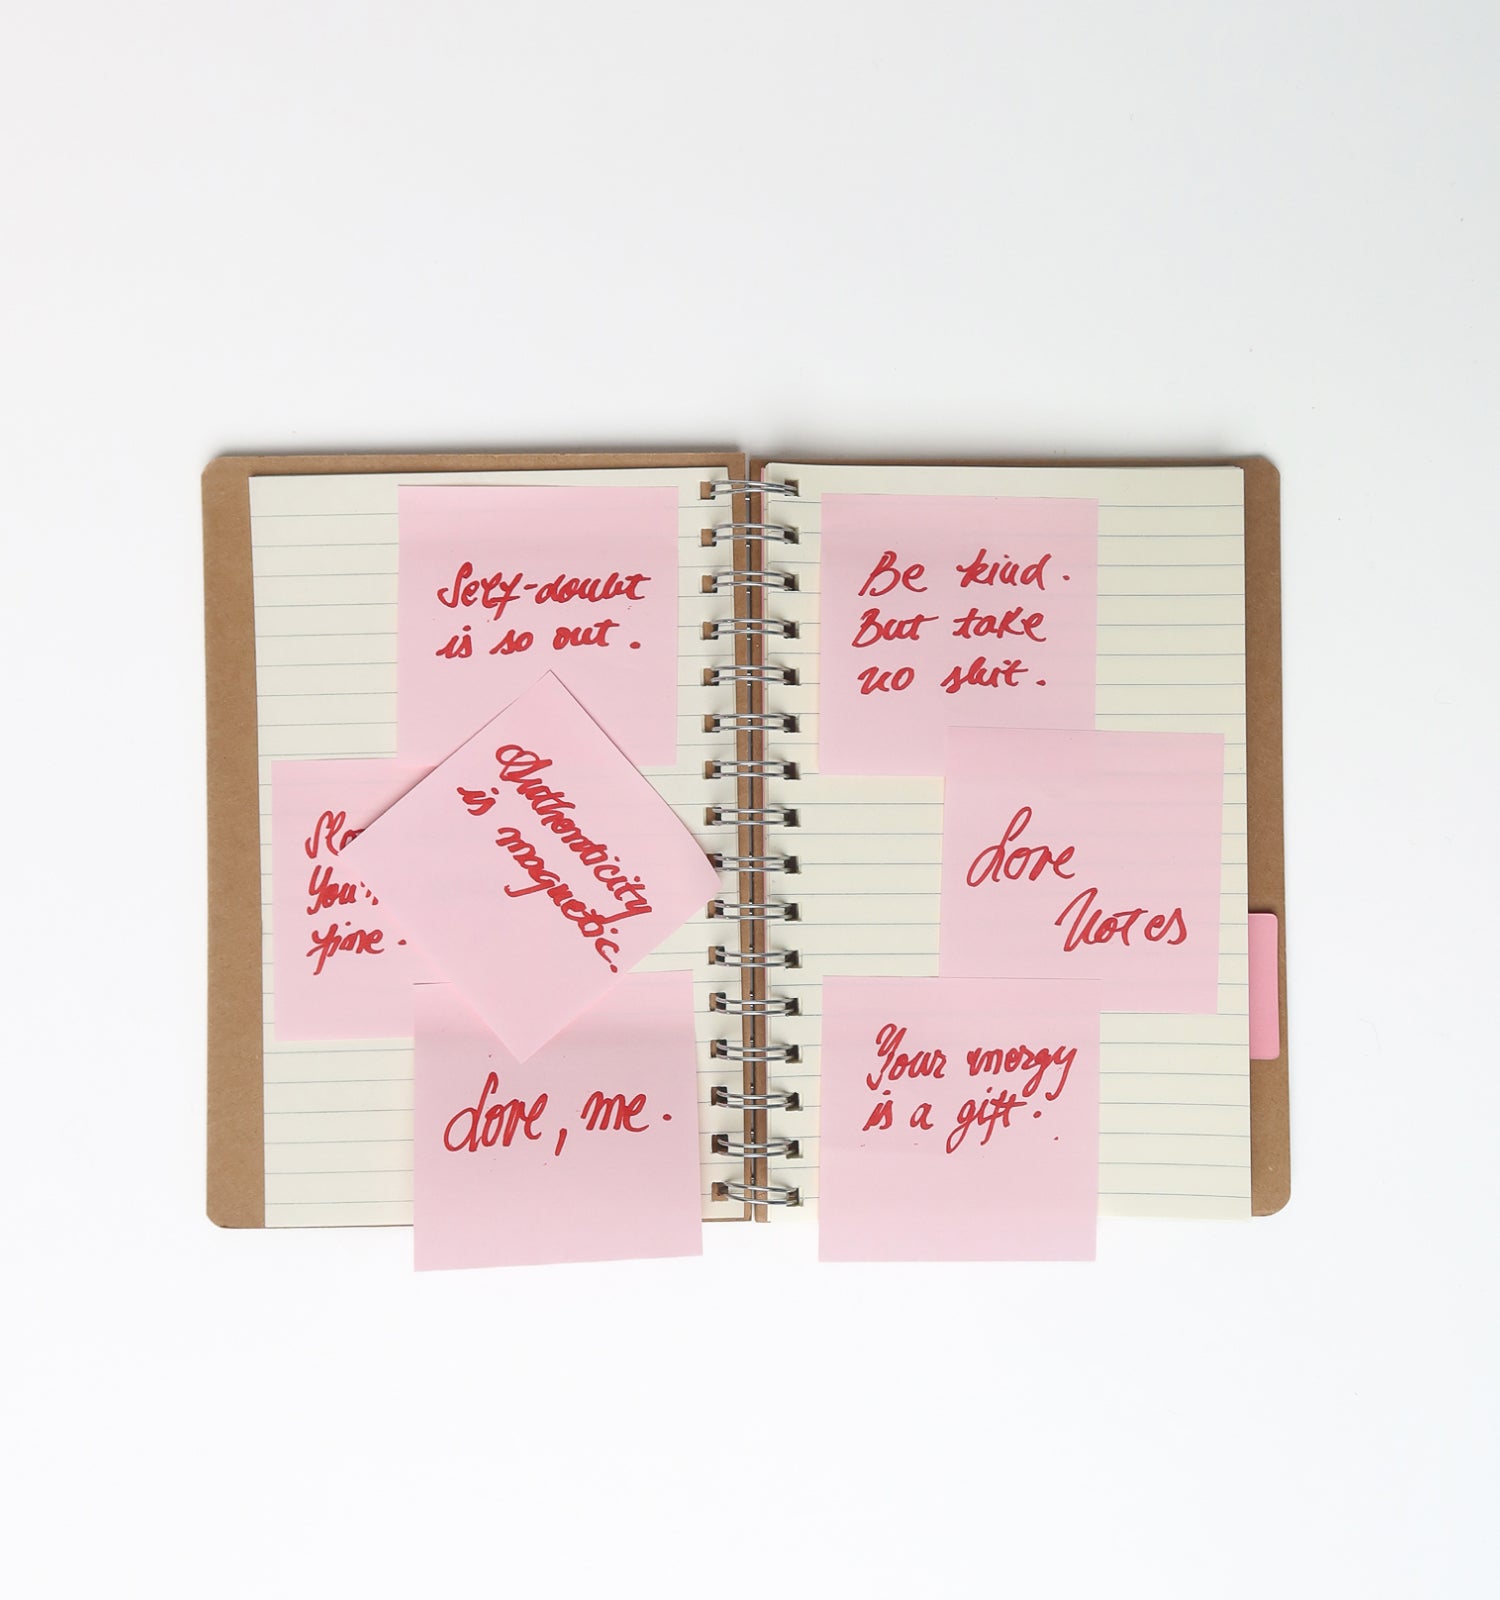 Self-doubt
is so out.
Authenticity
is magnetic.
fine.
Love, me.
Be kind.
But take
no shit.
Love
Notes
Your energy
is a gift.